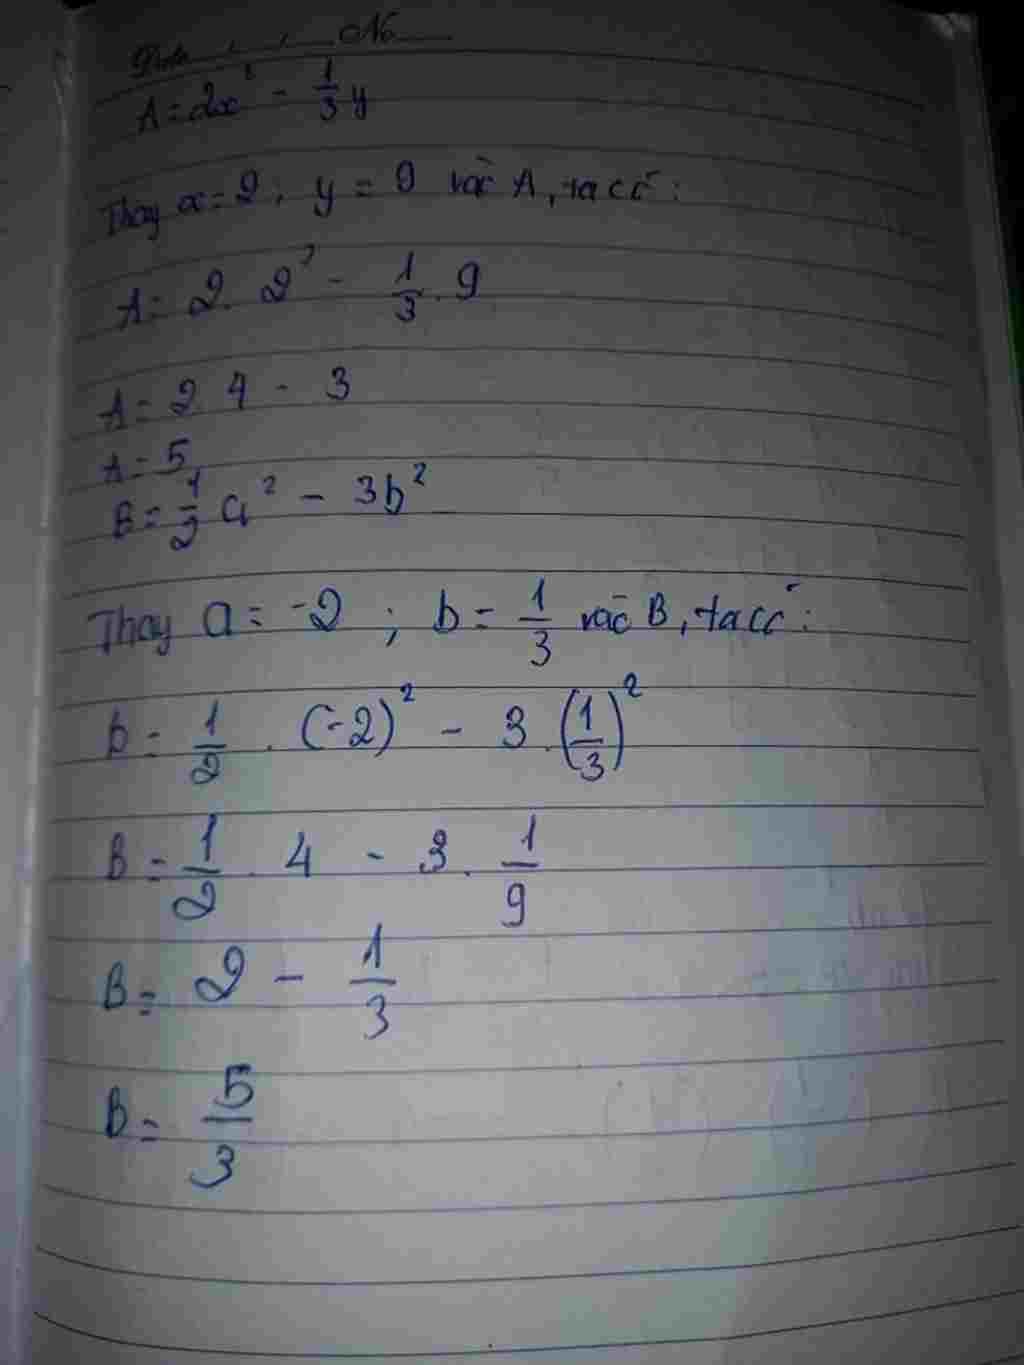 Date No
A = 2x² - 1/3 y
Thay x = 2 ; y = 9 vào A, ta có :
A = 2. 2² - 1/3 . 9
A = 2. 4 - 3
A = 5
B = 1/2 a² - 3b²
Thay a = -2 ; b = 1/3 vào B, ta có :
b = 1/2 . (-2)² - 3 . (1/3)²
B = 1/2 . 4 - 3 . 1/9
B = 2 - 1/3
B = 5/3